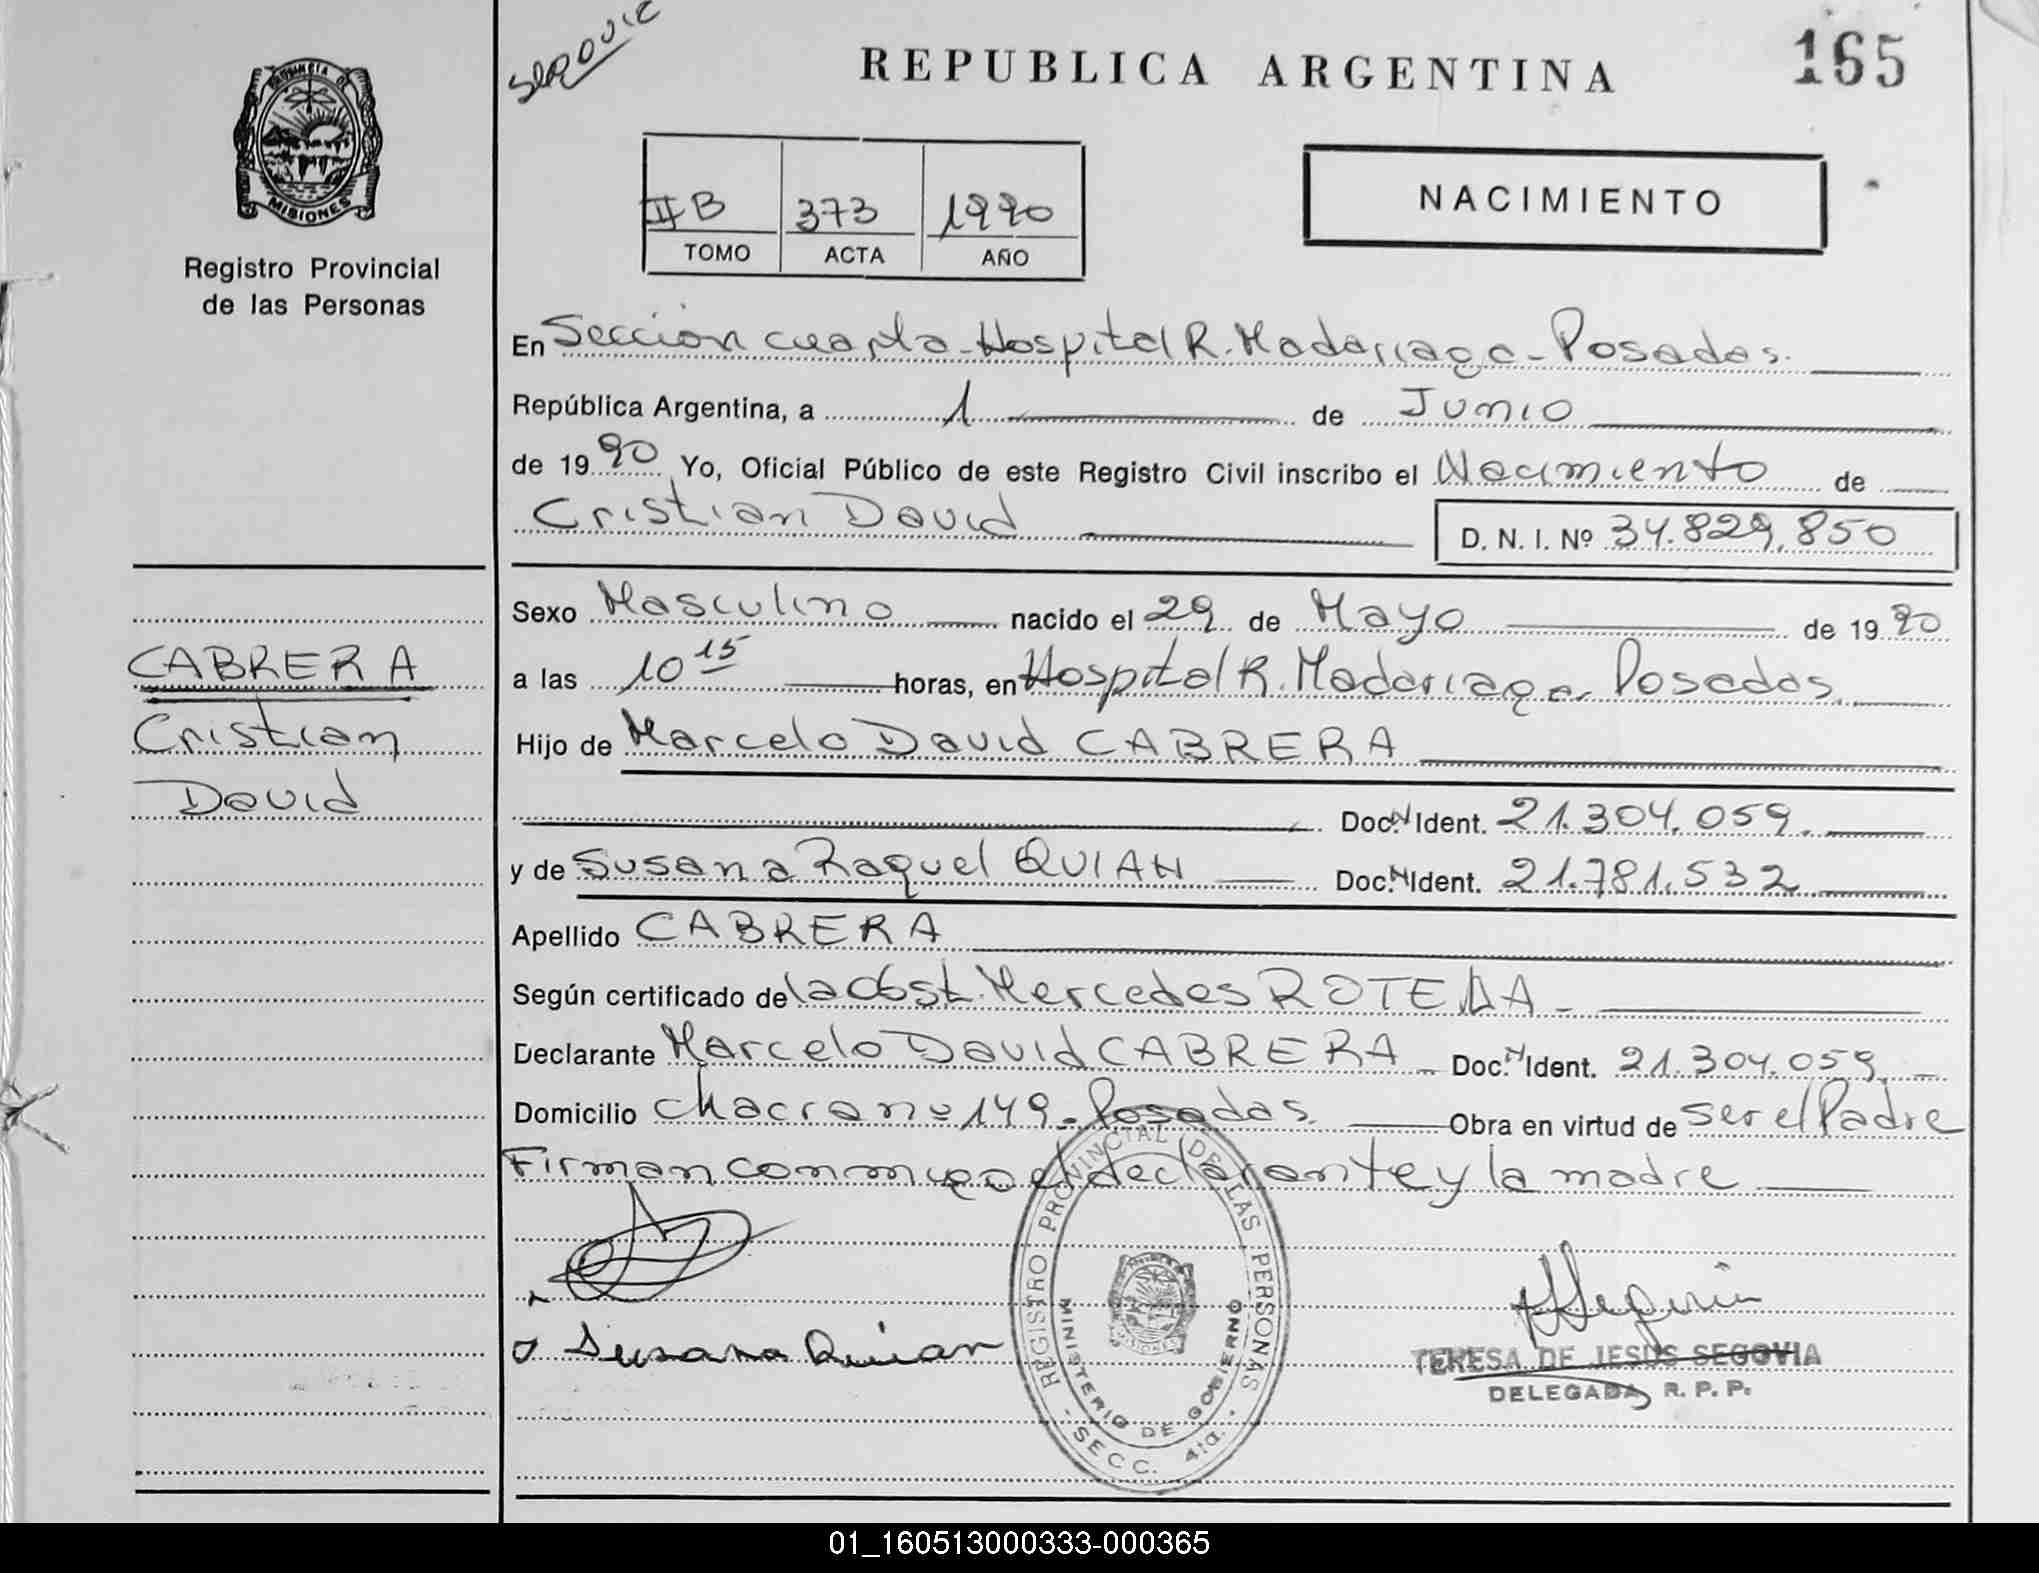 SEROVIC
REPUBLICA ARGENTINA
165
PROVINCIA DE
MISIONES
Registro Provincial
de las Personas
II B 373 1990
TOMO ACTA AÑO
NACIMIENTO
En Sección cuarta-Hospital R. Madariaga-Posadas.
República Argentina, a 1 de Junio
de 1990 Yo, Oficial Público de este Registro Civil inscribo el Nacimiento de
Cristian David D. N. I. Nº 34.829.850
Sexo Masculino nacido el 29 de Mayo de 1990
a las 10 15 horas, en Hospital R. Madariaga-Posadas.
CABRERA
Cristian
David
Hijo de Marcelo David CABRERA
Doc. N Ident. 21.304.059.
y de Susana Raquel QUIAN Doc. N Ident. 21.781.532
Apellido CABRERA
Según certificado de la Obst. Mercedes ROTELA-
Declarante Marcelo David CABRERA Doc. N Ident. 21.304.059.-
Domicilio Chacra nº 149-Posadas. Obra en virtud de ser el Padre
Firman conmigo el declarante y la madre
Susana Quian
REGISTRO PROVINCIAL DE LAS PERSONAS
MINISTERIO DE GOBIERNO
- SECC. 4ta. -
TERESA DE JESUS SEGOVIA
DELEGADA R. P. P.
01_160513000333-000365